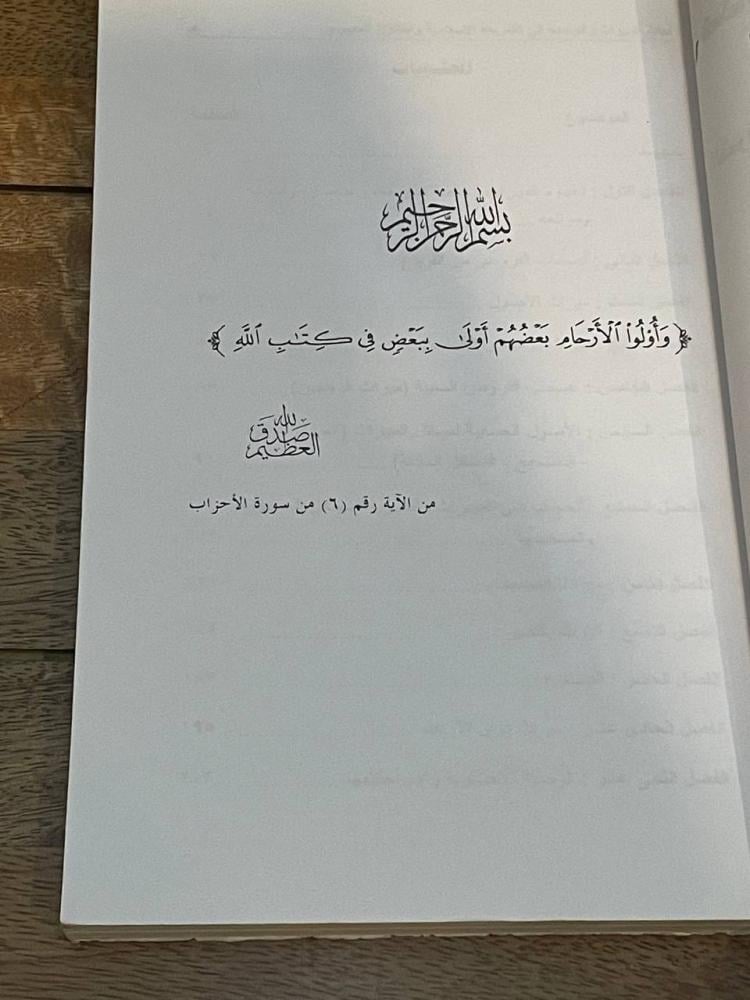 بسم الله الرحمن الرحيم
﴿ وَأُوْلُواْ ٱلْأَرْحَامِ بَعْضُهُمْ أَوْلَىٰ بِبَعْضٍ فِى كِتَٰبِ ٱللَّهِ ﴾
صدق الله العظيم
من الآية رقم (٦) من سورة الأحزاب